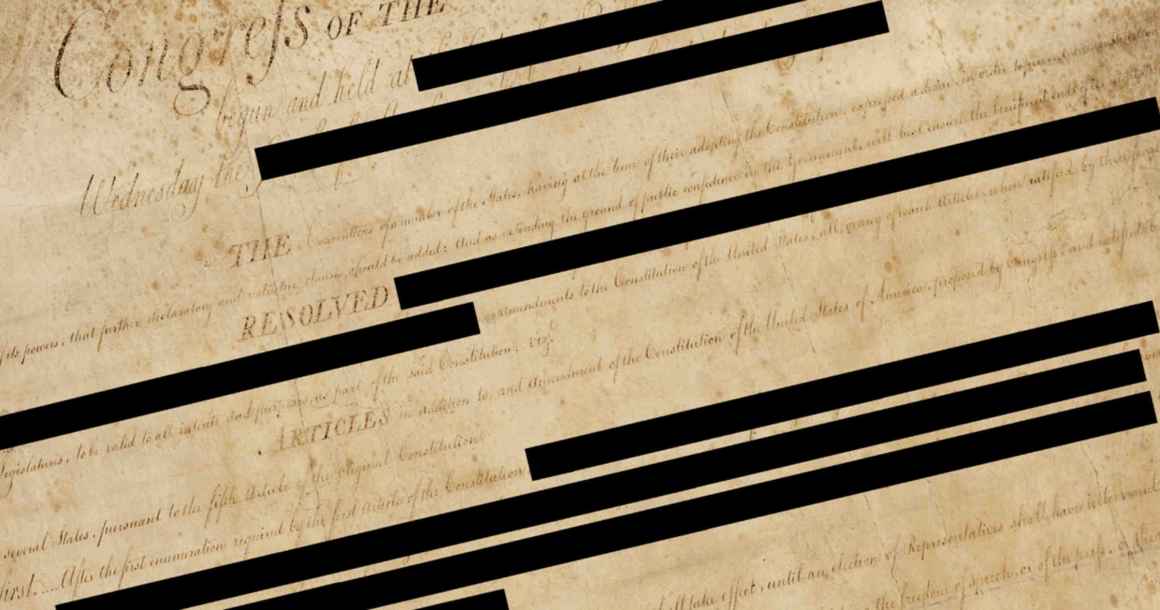 Congreſs OF THE
begun and held at
Wednesday the
THE Conventions of a number of the States, having at the time of their adopting the Constitution, expressed a desire, in order to prevent
its powers, that further declaratory and restrictive clauses should be added: And as extending the ground of public confidence in the Government, will best ensure the beneficent ends of
RESOLVED
amendments to the Constitution of the United States, all, or any of which Articles, when ratified by three
Legislatures, to be valid to all intents and purposes, as part of the said Constitution; viz.
ARTICLES in addition to, and Amendment of the Constitution of the United States of America, proposed by Congress, and ratified
several States, pursuant to the fifth Article of the original Constitution.
first.... After the first enumeration required by the first Article of the Constitution
take effect, until an election of Representatives shall have intervened
the freedom of speech, or of the press, or